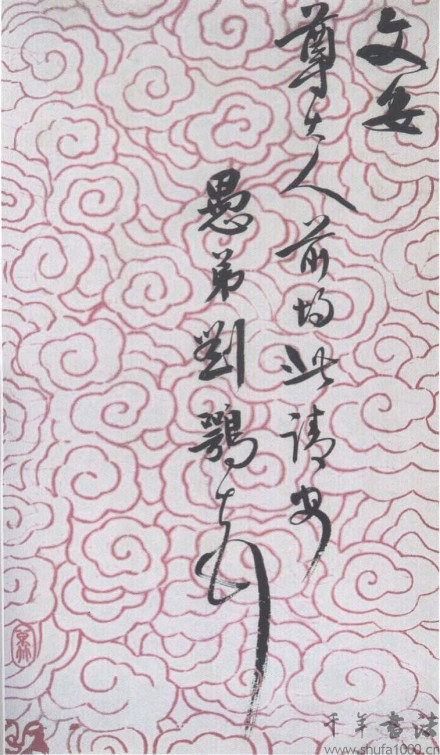 文安
尊大人前均此請安
愚弟劉鶚頓首
千年書法
www.shufa1000.cn